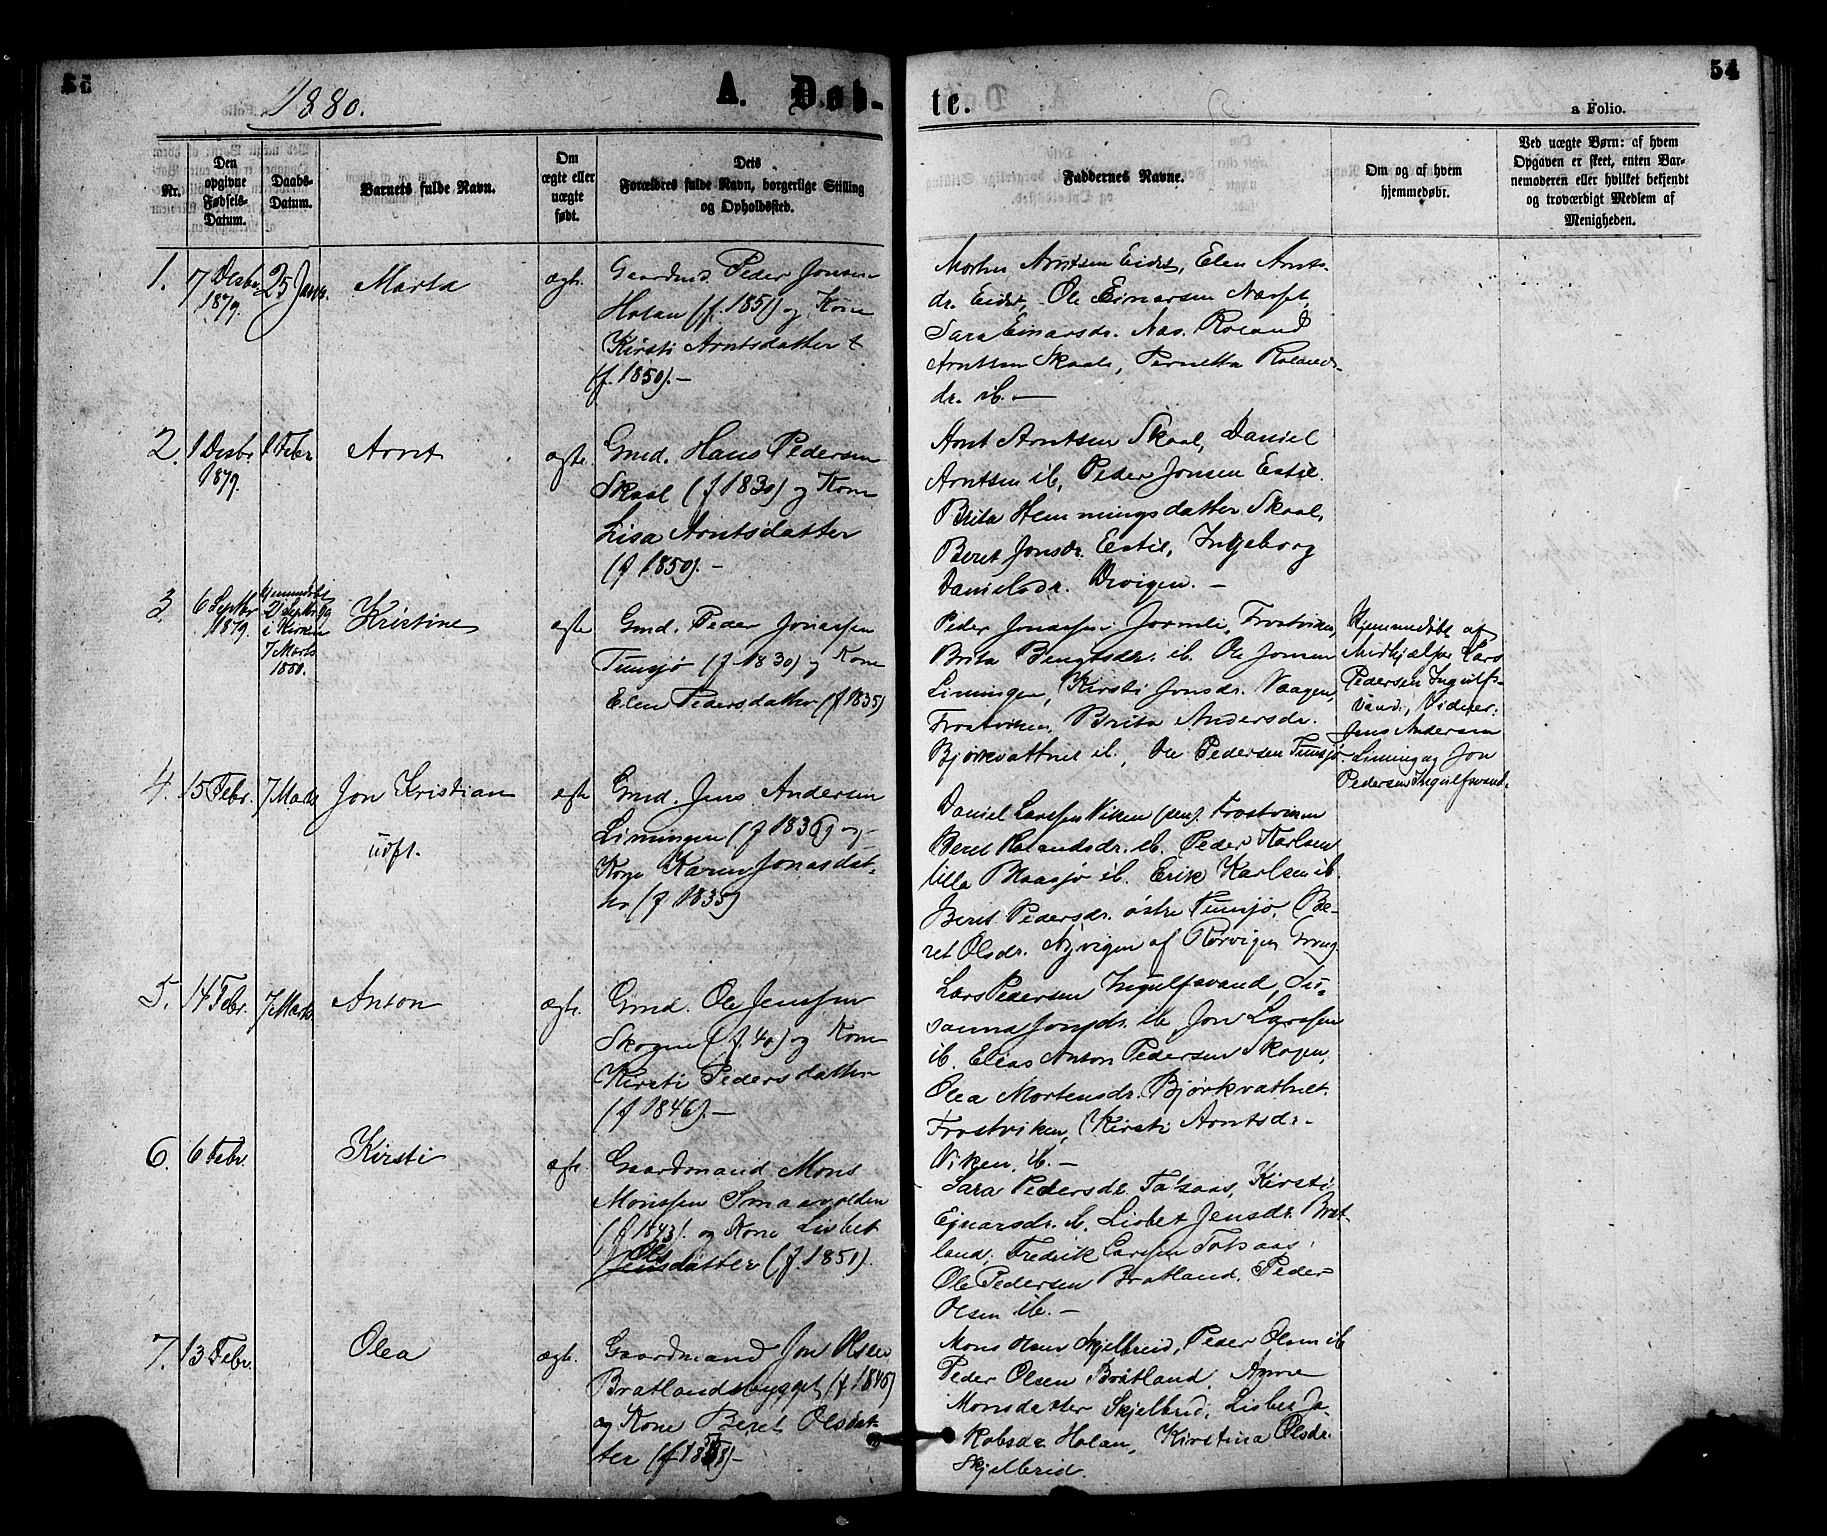 1880.
A. Døb-
te.
54
a Folio.
Nr.
Den opgivne Fødsels-Datum.
Daabs-Datum.
Barnets fulde Navn.
Om ægte eller uægte født.
Dets Forældres fulde Navn, borgerlige Stilling og Opholdssted.
Faddernes Navne.
Om og af hvem hjemmedøbt.
Ved uægte Børn: af hvem Opgaven er skeet, enten Barnemoderen eller hvilket bekjendt og troværdigt Medlem af Menigheden.
1.
7 Desbr. 1879.
25 Janr.
Marta
ægte.
Gaardmd. Peder Jonsen
Holan (f. 1851) og Kone
Kirsti Arntsdatter
(f. 1850).-
Morten Arntsen Eidet, Elen Arnts-
dr. Eidet, Ole Einarsen Næsset,
Sara Einarsdr. Næs. Roland
Arntsen Skaale, Pernetta Rolands-
dr. ib. -
2.
1 Desbr. 1879.
1 Febr.
Arnt
ægte.
Gmd. Hans Pedersen
Skaal (f 1830) og Kone
Lisa Arntsdatter
(f 1850). -
Arnt Arntsen Skaal, Daniel
Arntsen ib, Peder Jonsen Estil.
Brita Hemmingsdatter Skaal,
Beret Jonsdr. Estil, Ingeborg
Danielsdr. Devigen. -
3.
6 Septbr 1879.
Hjemmedøbt
21 Septbr og
i Kirken
7 Marts
1880.
Kristine
ægte
Gmd. Peder Jonassen
Tunsjø (f 1830) og Kone
Elen Pedersdatter (f 1835)
Peder Jonassen Jormlie, Frostviken,
Brita Bengtsdr. ib. Ole Jonsen
Limingen, Kirsti Jonsdr. Vaagen,
Frostviken, Brita Andersdr.
Bjørkvattnet ib., Ole Pedersen Tunsjø
Hjemmedøbt af
Medhjælper Lars
Pedersen Ingulfs-
vand, Vidner:
Jens Andersen
Liming og Jon
Pedersen Ingulfsvand.
4.
15 Febr.
7 Marts
Jon Kristian
udfl.
ægte
Gmd. Jens Andersen
Limingen (f 1836) og
Kone Karen Jonasdat-
ter (f 1835)
Daniel Larssen Viken (sen). Frostviken
Beret Rolandsdr. ib. Peder Karlsen
Lilla Blaasjø ib. Erik Karlsen ib.
Beret Pedersdr. østre Tunsjø, Be-
ret Olsdr. Nyvigen af Rørvigen,
5.
14 Febr.
7 Marts
Anton
ægte.
Gmd. Ole Jenssen
Skogen (f. 40) og Kone
Kirsti Pedersdatter
(f 1846). -
Lars Pedersen Ingulfsvand, Su-
sanna Jonsdr. ib Jon Larssen
ib. Elias Anton Pedersen Skogen,
Olea Mortensdr. Bjørkvattnet
Frostviken, Kirsti Arntsdr.
Viken, ib. -
6.
6 Febr.
Kirsti
ægte.
Gaardmand Mons
Monssen Smaavolden
(f 1843). og Kone Lisbet
Ols
Jensdatter (f. 1851).
Sara Pedersdr. Totsaas, Kirsti
Ejnarsdr. ib. Lisbet Jensdr. Brat-
land, Fredrik Larssen Totsaas,
Ole Pedersen Bratland, Peder
Olsen ib. -
7.
13 Febr.
Olea
ægte.
Gaardmand Jon Olsen
Bratlandsbygget (f. 1846)
og Kone Beret Olsdat-
ter
Mons Olsen Skjelbreid, Peder Olsen ib
Peder Olsen Bratland. Anne
Monsdatter Skjelbred, Lisbet Ja-
kobsdr Holan, Kirstina Olsdr.
Skjelbreid.